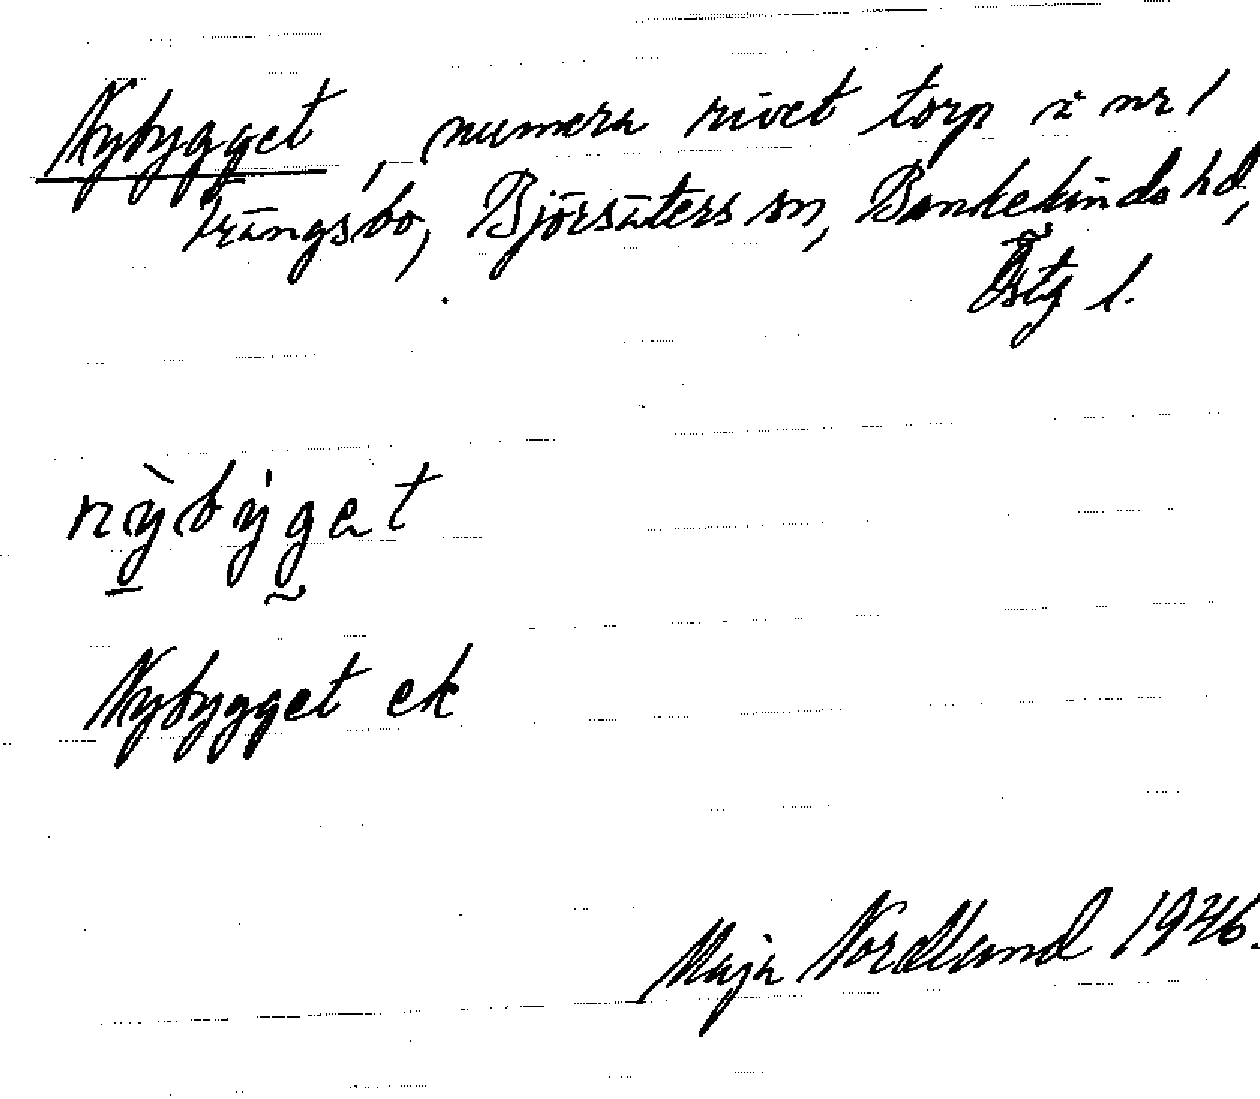 Nybygget, numera rivet torp å nr 1
Trängsbo, Björsäters sn, Bankekinds hd,
Östg l.
nỳbýgat
Nybygget ek
Maja Nordlund 1946.